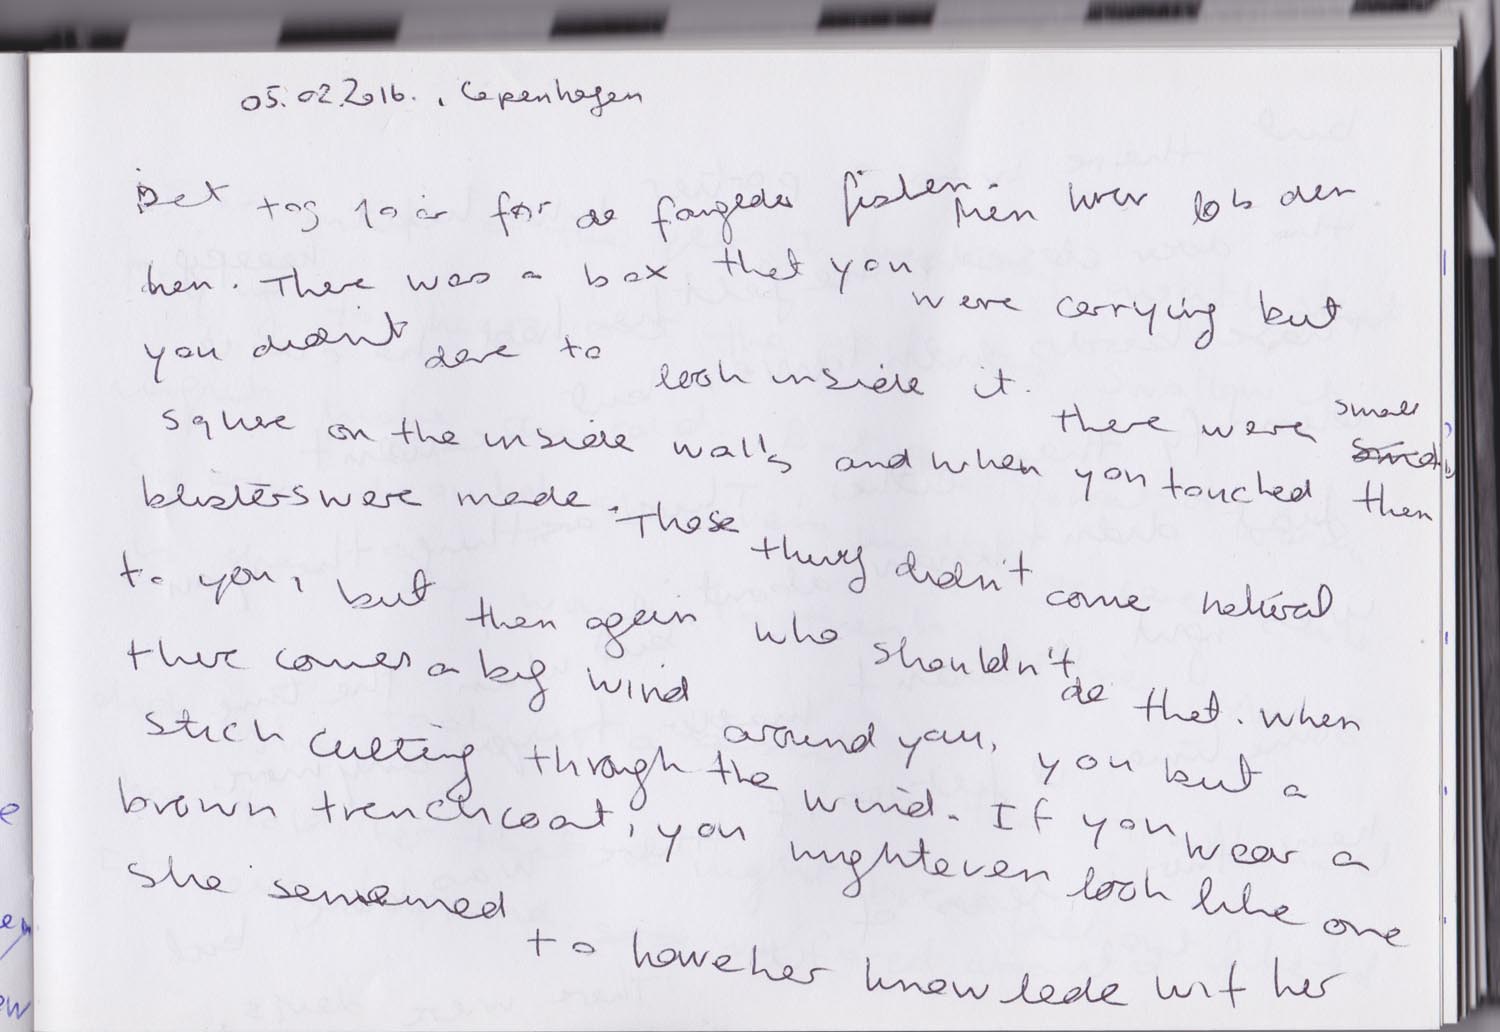 05.02.2016., Copenhagen
Det tog 10 år for de fangede fisken. Men hvor løb den
hen. There was a box that you were carrying but
you didn't dare to look inside it. there were small
squre on the inside walls and when you touched them
blisters were made. Those things didn't come natural
to you, but then again who shouldn't do that. when
there comes a big wind around you, you but a
stick cutting through the wind. If you wear a
brown trenchcoat, you might even look like one
she sememed to have her knowlede wit her